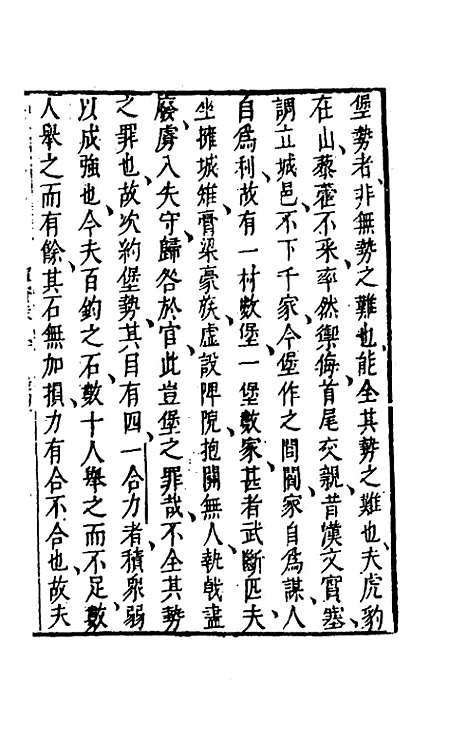 堡勢者、非無勢之難也、能全其勢之難也、夫虎豹
在山、藜藿不采、率然禦侮、首尾交親、昔漢文實塞、
調立城邑、不下千家、今堡作之閭閻、家自為謀、人
自為利、故有一村數堡、一堡數家、甚者武斷匹夫、
坐擁城雉、膏粱豪族、虛設陴院、抱關無人、執戟盡
廢、虜入失守、歸咎於官、此豈堡之罪哉、不全其勢
之罪也、故次約堡勢、其目有四、一合力者、積衆弱
以成強也、今夫百鈞之石、數十人舉之而不足、數
人舉之而有餘、其石無加損、力有合不合也、故夫